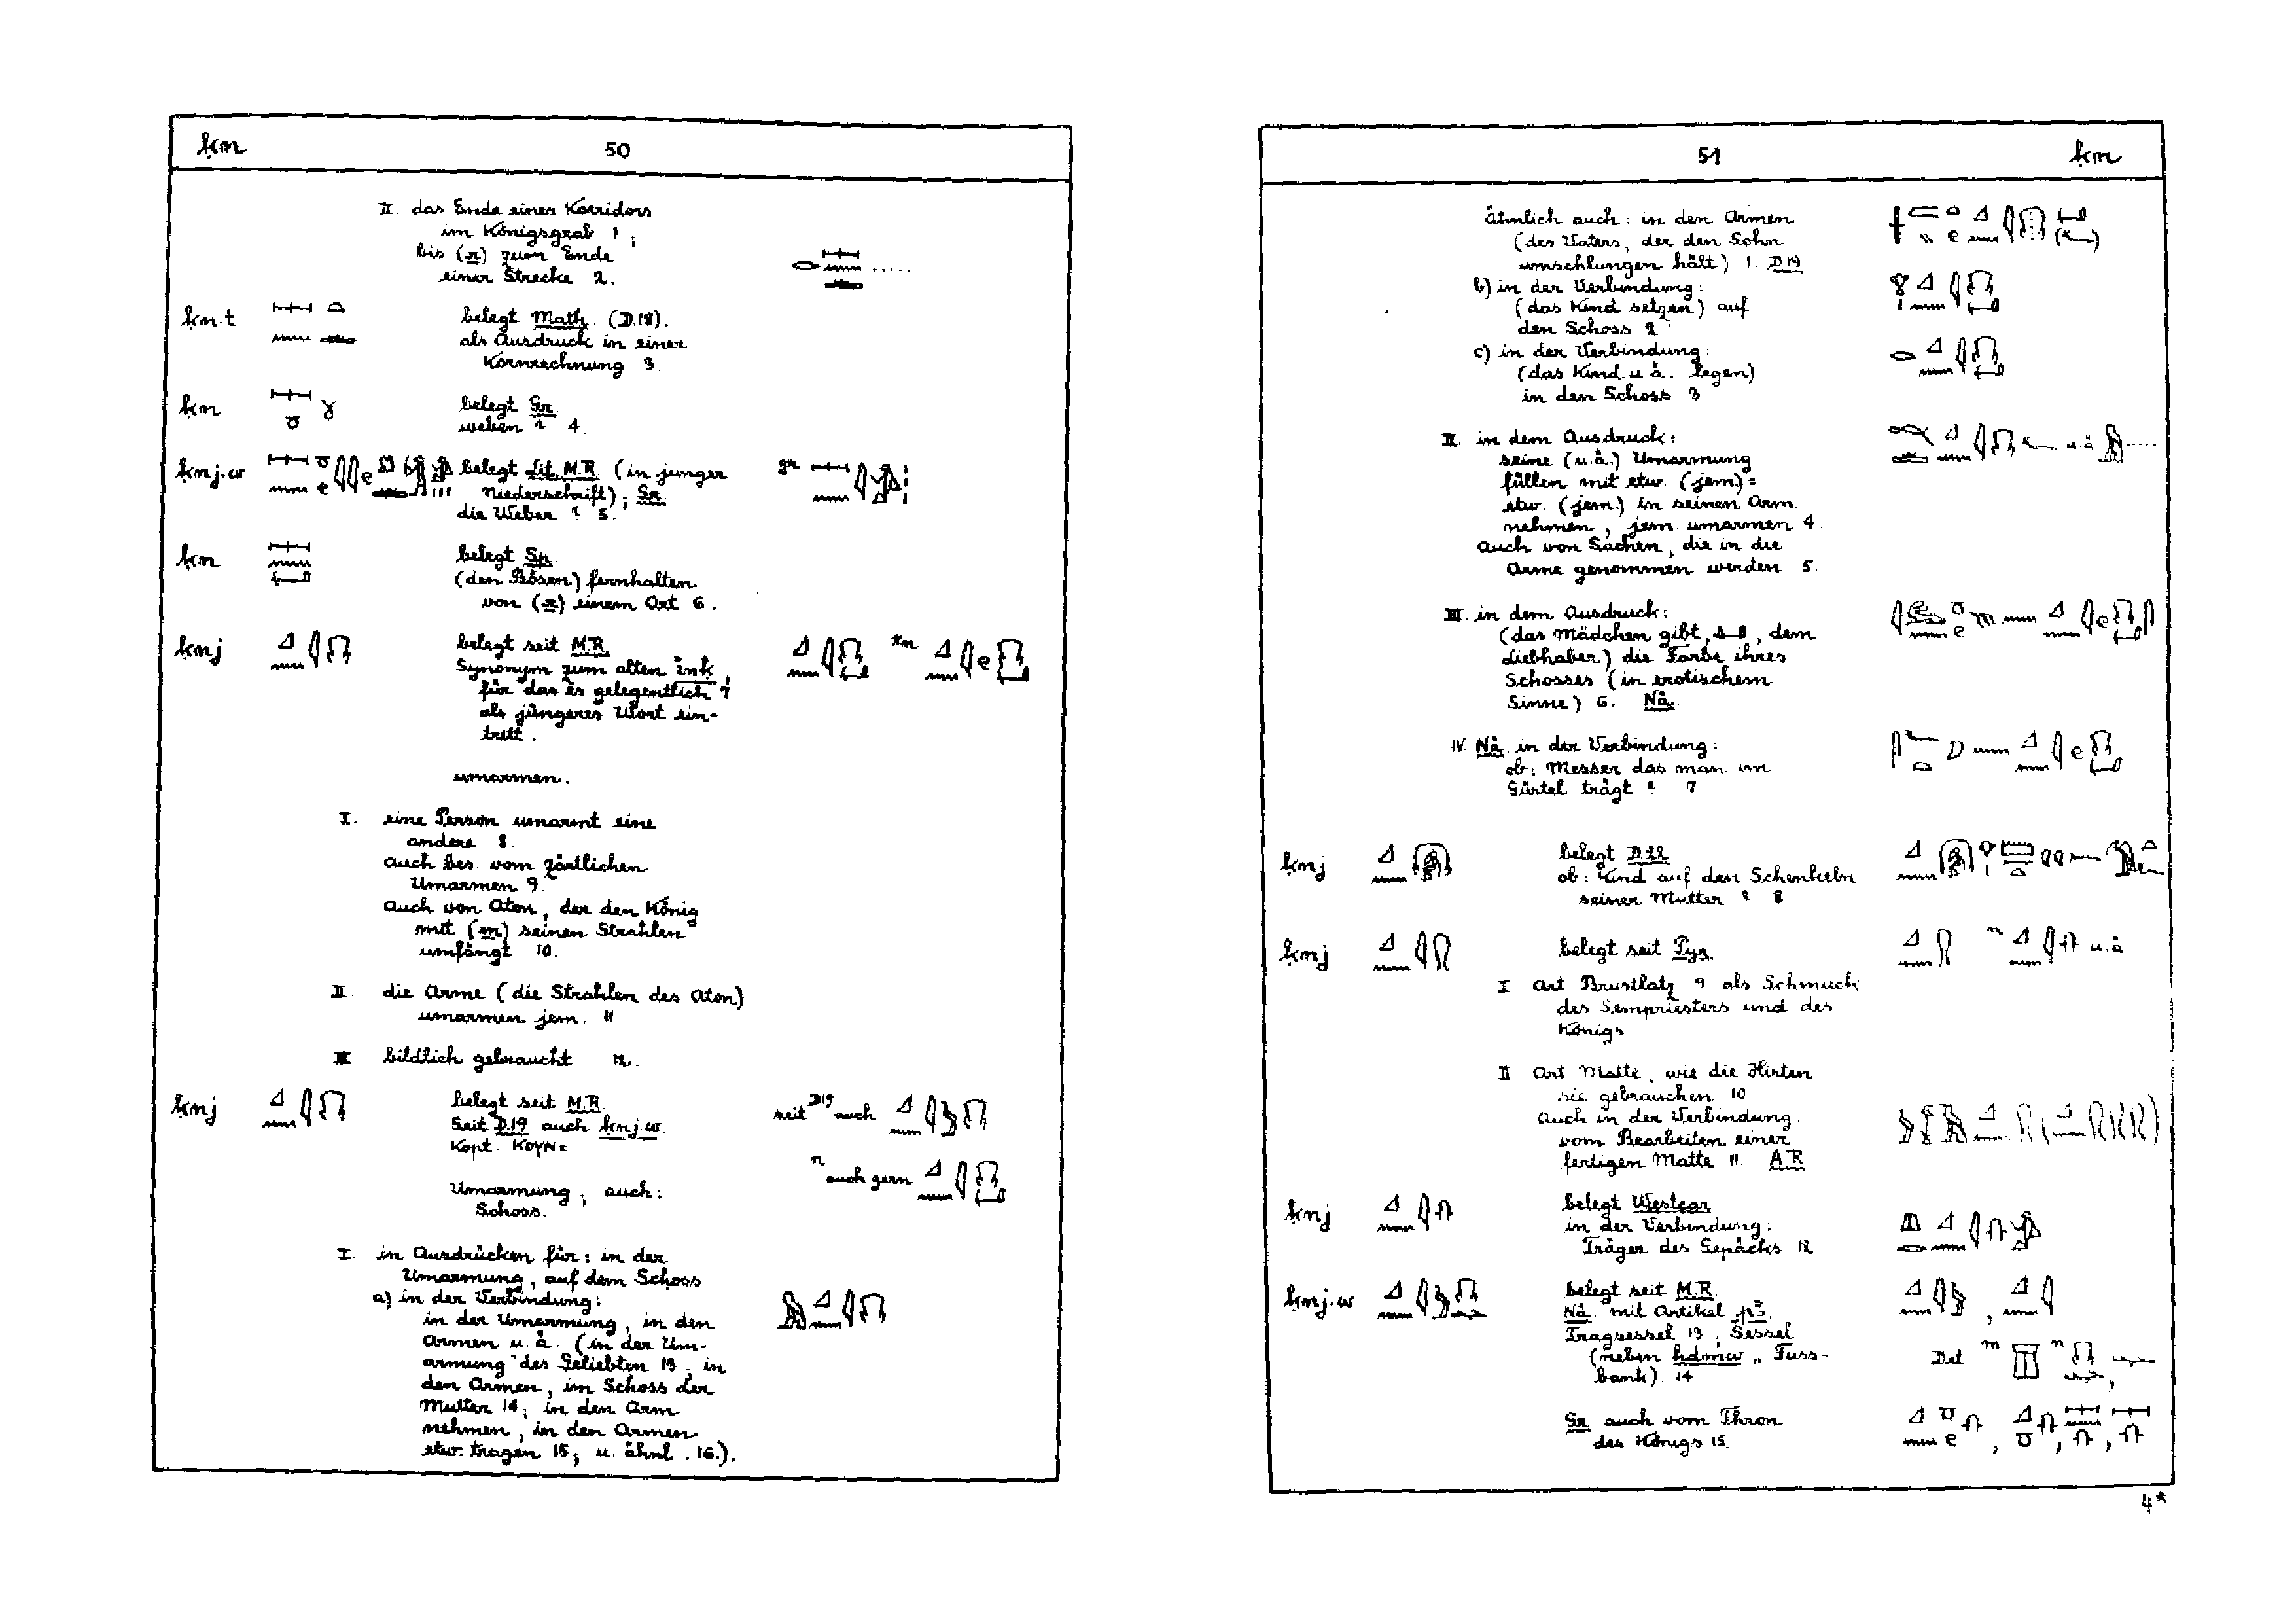 ḳn 50
II. das Ende eines Korridors
im Königsgrab 1;
bis (r) zum Ende
einer Strecke 2.
ḳn.t belegt Math. (D.18).
als Ausdruck in einer
Kornrechnung 3.
ḳn belegt Gr.
weben? 4.
ḳnj.w belegt Lit. M.R. (in junger gr
Niederschrift); Gr.
die Weber? 5.
ḳn belegt Sp.
(den Bösen) fernhalten
von (r) einem Ort 6.
ḳnj belegt seit M.R.
Synonym zum alten inḳ,
für das es gelegentlich 7
als jüngeres Wort ein-
tritt.
umarmen.
I. eine Person umarmt eine
andere 8.
auch bes. vom zärtlichen
Umarmen 9.
auch von Aton, der den König
mit (m) seinen Strahlen
umfängt 10.
II. die Arme (die Strahlen des Aton)
umarmen jem. 11
III bildlich gebraucht 12.
ḳnj belegt seit M.R. seit D19 auch
Seit D.19 auch ḳnj.w.
Kopt. ΚΟΥΝ=
n auch gern
Umarmung; auch:
Schoss.
I. in Ausdrücken für: in der
Umarmung, auf dem Schoss
a) in der Verbindung:
in der Umarmung, in den
Armen u.ä. (in der Um-
armung des Geliebten 13; in
den Armen, im Schoss der
Mutter 14; in den Arm
nehmen, in den Armen
etw. tragen 15; u. ähnl. 16.).
51 ḳn
ähnlich auch: in den Armen
(des Vaters, der den Sohn
umschlungen hält) 1. D19
b) in der Verbindung:
(das Kind setzen) auf
den Schoss 2
c) in der Verbindung:
(das Kind u.ä. legen)
in den Schoss 3
II. in dem Ausdruck: u.ä.
seine (u.ä.) Umarmung
füllen mit etw. (jem.) =
etw. (jem.) in seinen Arm
nehmen, jem. umarmen 4.
auch von Sachen, die in die
Arme genommen werden 5.
III. in dem Ausdruck:
(das Mädchen gibt, dem
Liebhaber) die Farbe ihres
Schosses (in erotischem
Sinne) 6. Nä.
IV. Nä. in der Verbindung:
ob: Messer das man im
Gürtel trägt? 7
ḳnj belegt D.22
ob: Kind auf den Schenkeln
seiner Mutter? 8
ḳnj belegt seit Pyr. n u.ä
I Art Brustlatz 9 als Schmuck
des Sempriesters und des
Königs
II Art Matte, wie die Hirten
sie gebrauchen. 10
Auch in der Verbindung.
vom Bearbeiten einer
fertigen Matte 11. A.R
ḳnj belegt Westcar
in der Verbindung:
Träger des Gepäcks 12
ḳnj.w belegt seit M.R.
Nä. mit Artikel pꜣ.
Tragsessel 13; Sessel
(neben hdmw „Fuss- Det m n
bank). 14
Gr auch vom Thron
des Königs 15.
4*